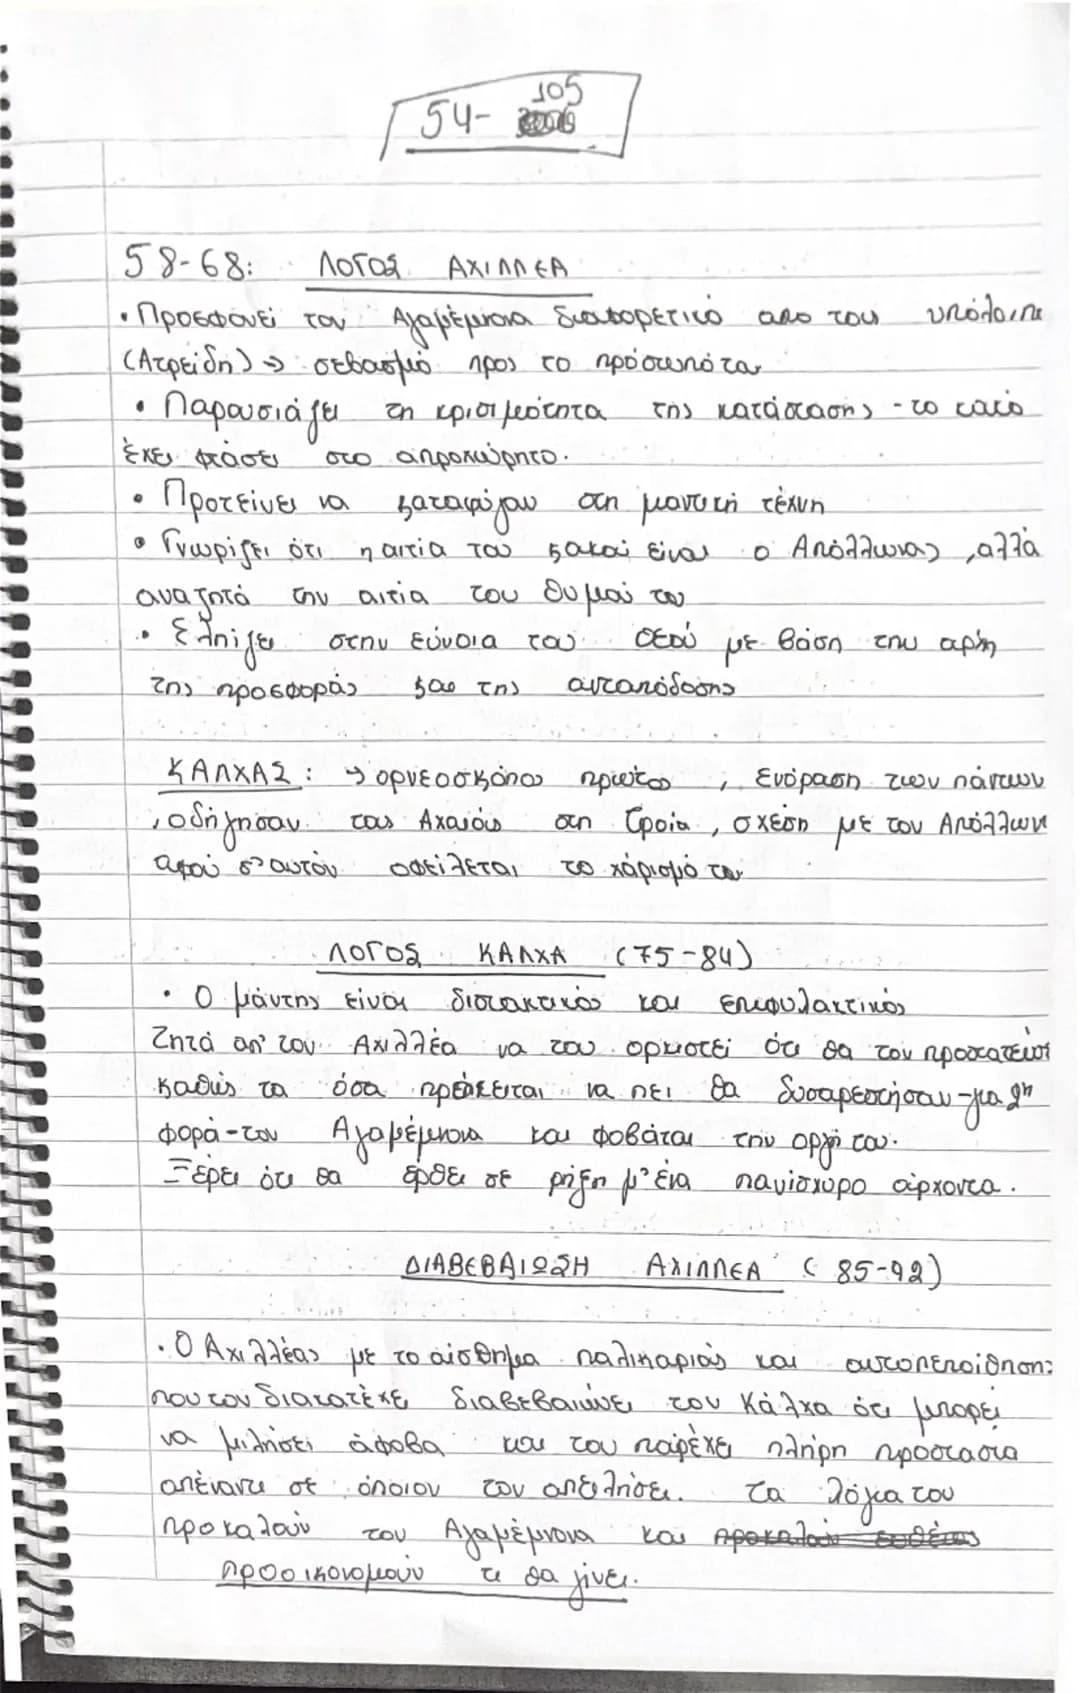 54- 105
58-68: ΛΟΓΟΣ ΑΧΙΛΛΕΑ
• Προσφωνεί τον Αγαμέμνονα διαφορετικά απο τους υπόλοιπ
(Ατρείδη) → σεβασμό προς το πρόσωπό του
• Παρουσιάζει τη κρισιμότητα της κατάστασης - το κακό
έχει φτάσει στο απροχώρητο.
• Προτείνει να καταφύγουν στη μαντική τέχνη
• Γνωρίζει ότι η αιτία του κακού είναι ο Απόλλωνας, αλλά
αναζητά την αιτία του θυμού του
• Ελπίζει στην εύνοια του θεού με βάση την αρχή
της προσφοράς και της ανταπόδοσης
ΚΑΛΧΑΣ: → ορνεοσκόπο πρώτο, ενόραση των πάντων
, οδήγησαν τους Αχαιούς στη Τροία, σχέση με τον Απόλλων
αφού σ' αυτόν οφείλεται το χάρισμά του
ΛΟΓΟΣ ΚΑΛΧΑ (75-84)
• Ο μάντης είναι διστακτικός και επιφυλακτικός
Ζητά απ' τον Αχιλλέα να του ορκιστεί ότι θα τον προστατεύσ
καθώς τα όσα πρόκειται να πει θα δυσαρεστήσουν - για 2η
φορά - τον Αγαμέμνονα και φοβάται την οργή του.
Ξέρει ότι θα έρθει σε ρήξη μ' ένα πανίσχυρο άρχοντα.
ΔΙΑΒΕΒΑΙΩΣΗ ΑΧΙΛΛΕΑ (85-92)
• Ο Αχιλλέας με το αίσθημα παλικαριάς και αυτοπεποίθησης
που τον διακατέχει διαβεβαιώνει τον Κάλχα ότι μπορεί
να μιλήσει άφοβα και του παρέχει πλήρη προστασία
απέναντι σε όποιον τον απειλήσει. Τα λόγια του
προκαλούν τον Αγαμέμνονα και προκαλούν
προοικονομούν τι θα γίνει.